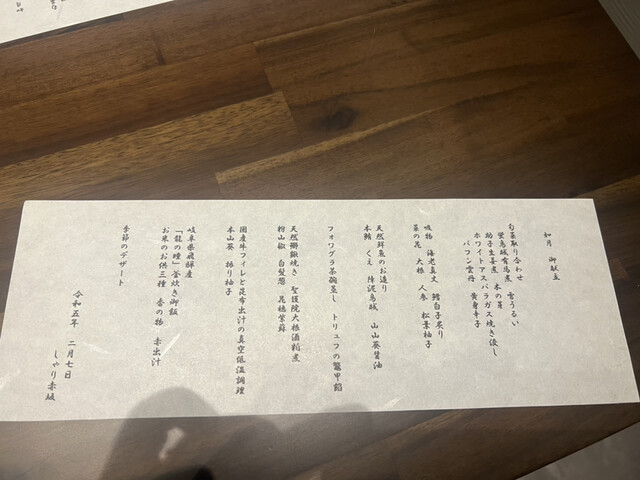 如月　御献立
旬菜取り合わせ
蛍烏賊有馬煮　木の芽　雪うるい
助子生姜煮
ホワイトアスパラガス焼き浸し
バフン雲丹　黄身辛子
吸物　海老真丈　鱈白子炙り
菜の花　大根　人参　松葉柚子
天然鮮魚のお造り
本鮪　くえ　障泥烏賊　山山葵醤油
フォワグラ茶碗蒸し　トリュフの鼈甲餡
天然鰤鍬焼き　聖護院大根酒粕煮
粉山椒　白髪葱　花穂紫蘇
国産牛フィレと昆布出汁の真空低温調理
本山葵　振り柚子
岐阜県飛騨産
「龍の瞳」釜炊き御飯
お米のお供三種　香の物　赤出汁
季節のデザート
令和五年　二月七日
しゃり赤坂